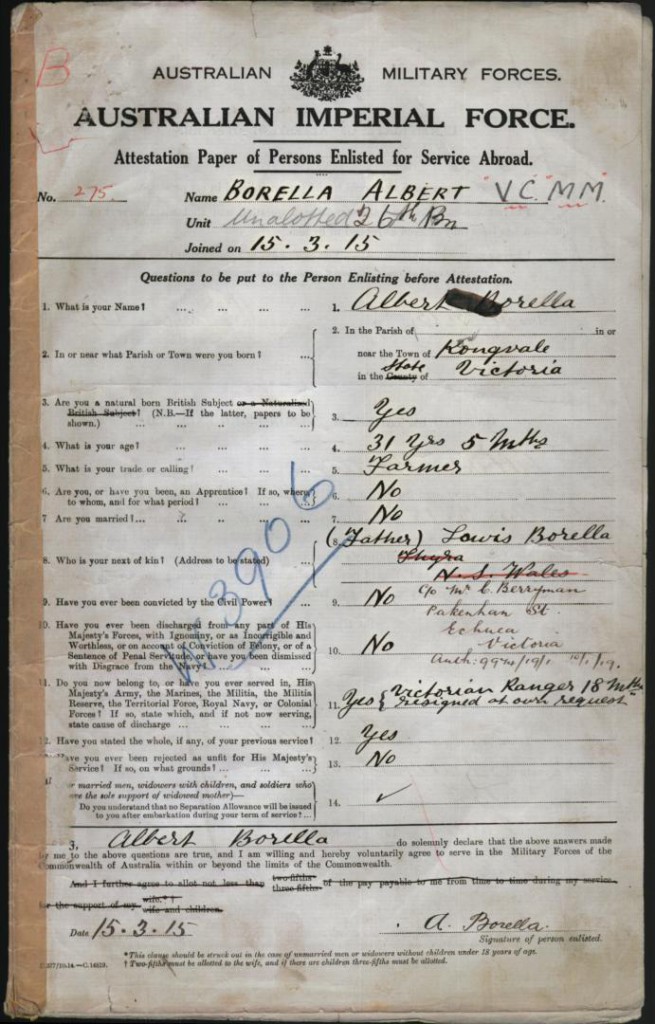 B
AUSTRALIAN MILITARY FORCES.
AUSTRALIAN IMPERIAL FORCE.
Attestation Paper of Persons Enlisted for Service Abroad.
No. 275. Name BORELLA ALBERT V.C. M.M.
Unit Unalotted 26th Bn
Joined on 15.3.15
Questions to be put to the Person Enlisting before Attestation.
1. What is your Name? ... ... ... ... 1. Albert Borella
2. In or near what Parish or Town were you born? ... ... 2. In the Parish of in or
near the Town of Kongvale
in the County State of Victoria
3. Are you a natural born British Subject or a Naturalized
British Subject? (N.B.—If the latter, papers to be
shown.) ... ... ... ... ... 3. Yes
4. What is your age? ... ... ... ... 4. 31 Yrs 5 Mths
5. What is your trade or calling? ... ... ... 5. Farmer
6. Are you, or have you been, an Apprentice? If so, where,
to whom, and for what period? ... ... ... 6. No
7. Are you married?... ... ... ... 7. No
8. Who is your next of kin? (Address to be stated) ... 8. (Father) Lowis Borella
Thyra
N. S. Wales
c/o Mr C. Berryman
9. Have you ever been convicted by the Civil Power? ... 9. No
Pakenham St.
Echuca
Victoria
10. Have you ever been discharged from any part of His
Majesty's Forces, with Ignominy, or as Incorrigible and
Worthless, or on account of Conviction of Felony, or of a
Sentence of Penal Servitude, or have you been dismissed
with Disgrace from the Navy? ... ... ... 10. No
11. Do you now belong to, or have you ever served in, His
Majesty's Army, the Marines, the Militia, the Militia
Reserve, the Territorial Force, Royal Navy, or Colonial
Forces? If so, state which, and if not now serving,
state cause of discharge ... ... ... 11. Yes { Victorian Ranger 18 Mths
resigned at own request
12. Have you stated the whole, if any, of your previous service? 12. Yes
Have you ever been rejected as unfit for His Majesty's
Service? If so, on what grounds? ... ... 13. No
married men, widowers with children, and soldiers who
are the sole support of widowed mother)—
Do you understand that no Separation Allowance will be issued
to you after embarkation during your term of service? ... 14. ✓
W 3906
I, Albert Borella do solemnly declare that the above answers made
by me to the above questions are true, and I am willing and hereby voluntarily agree to serve in the Military Forces of the
Commonwealth of Australia within or beyond the limits of the Commonwealth.
And I further agree to allot not less than two-fifths three-fifths of the pay payable to me from time to time during my service
for the support of my wife.*† wife and children.
Date 15.3.15 A. Borella.
Signature of person enlisted.
* This clause should be struck out in the case of unmarried men or widowers without children under 18 years of age.
† Two-fifths must be allotted to the wife, and if there are children three-fifths must be allotted.